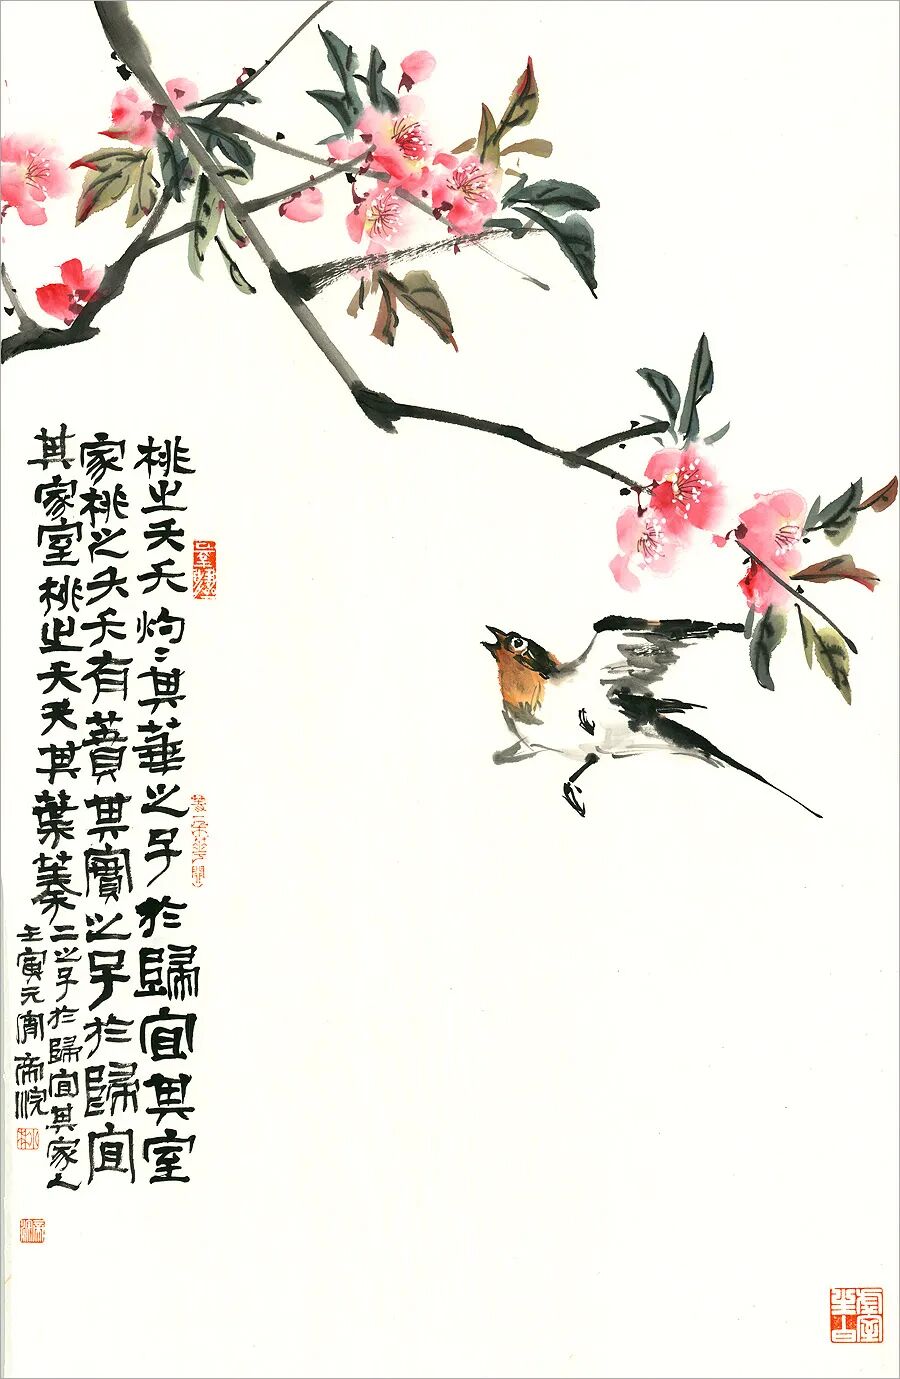 桃之夭夭灼〻其華之子於歸宜其室
家桃之夭夭有蕡其實之子於歸宜
其家室桃之夭夭其葉蓁〻之子於歸宜其家人
壬寅元宵帝浣